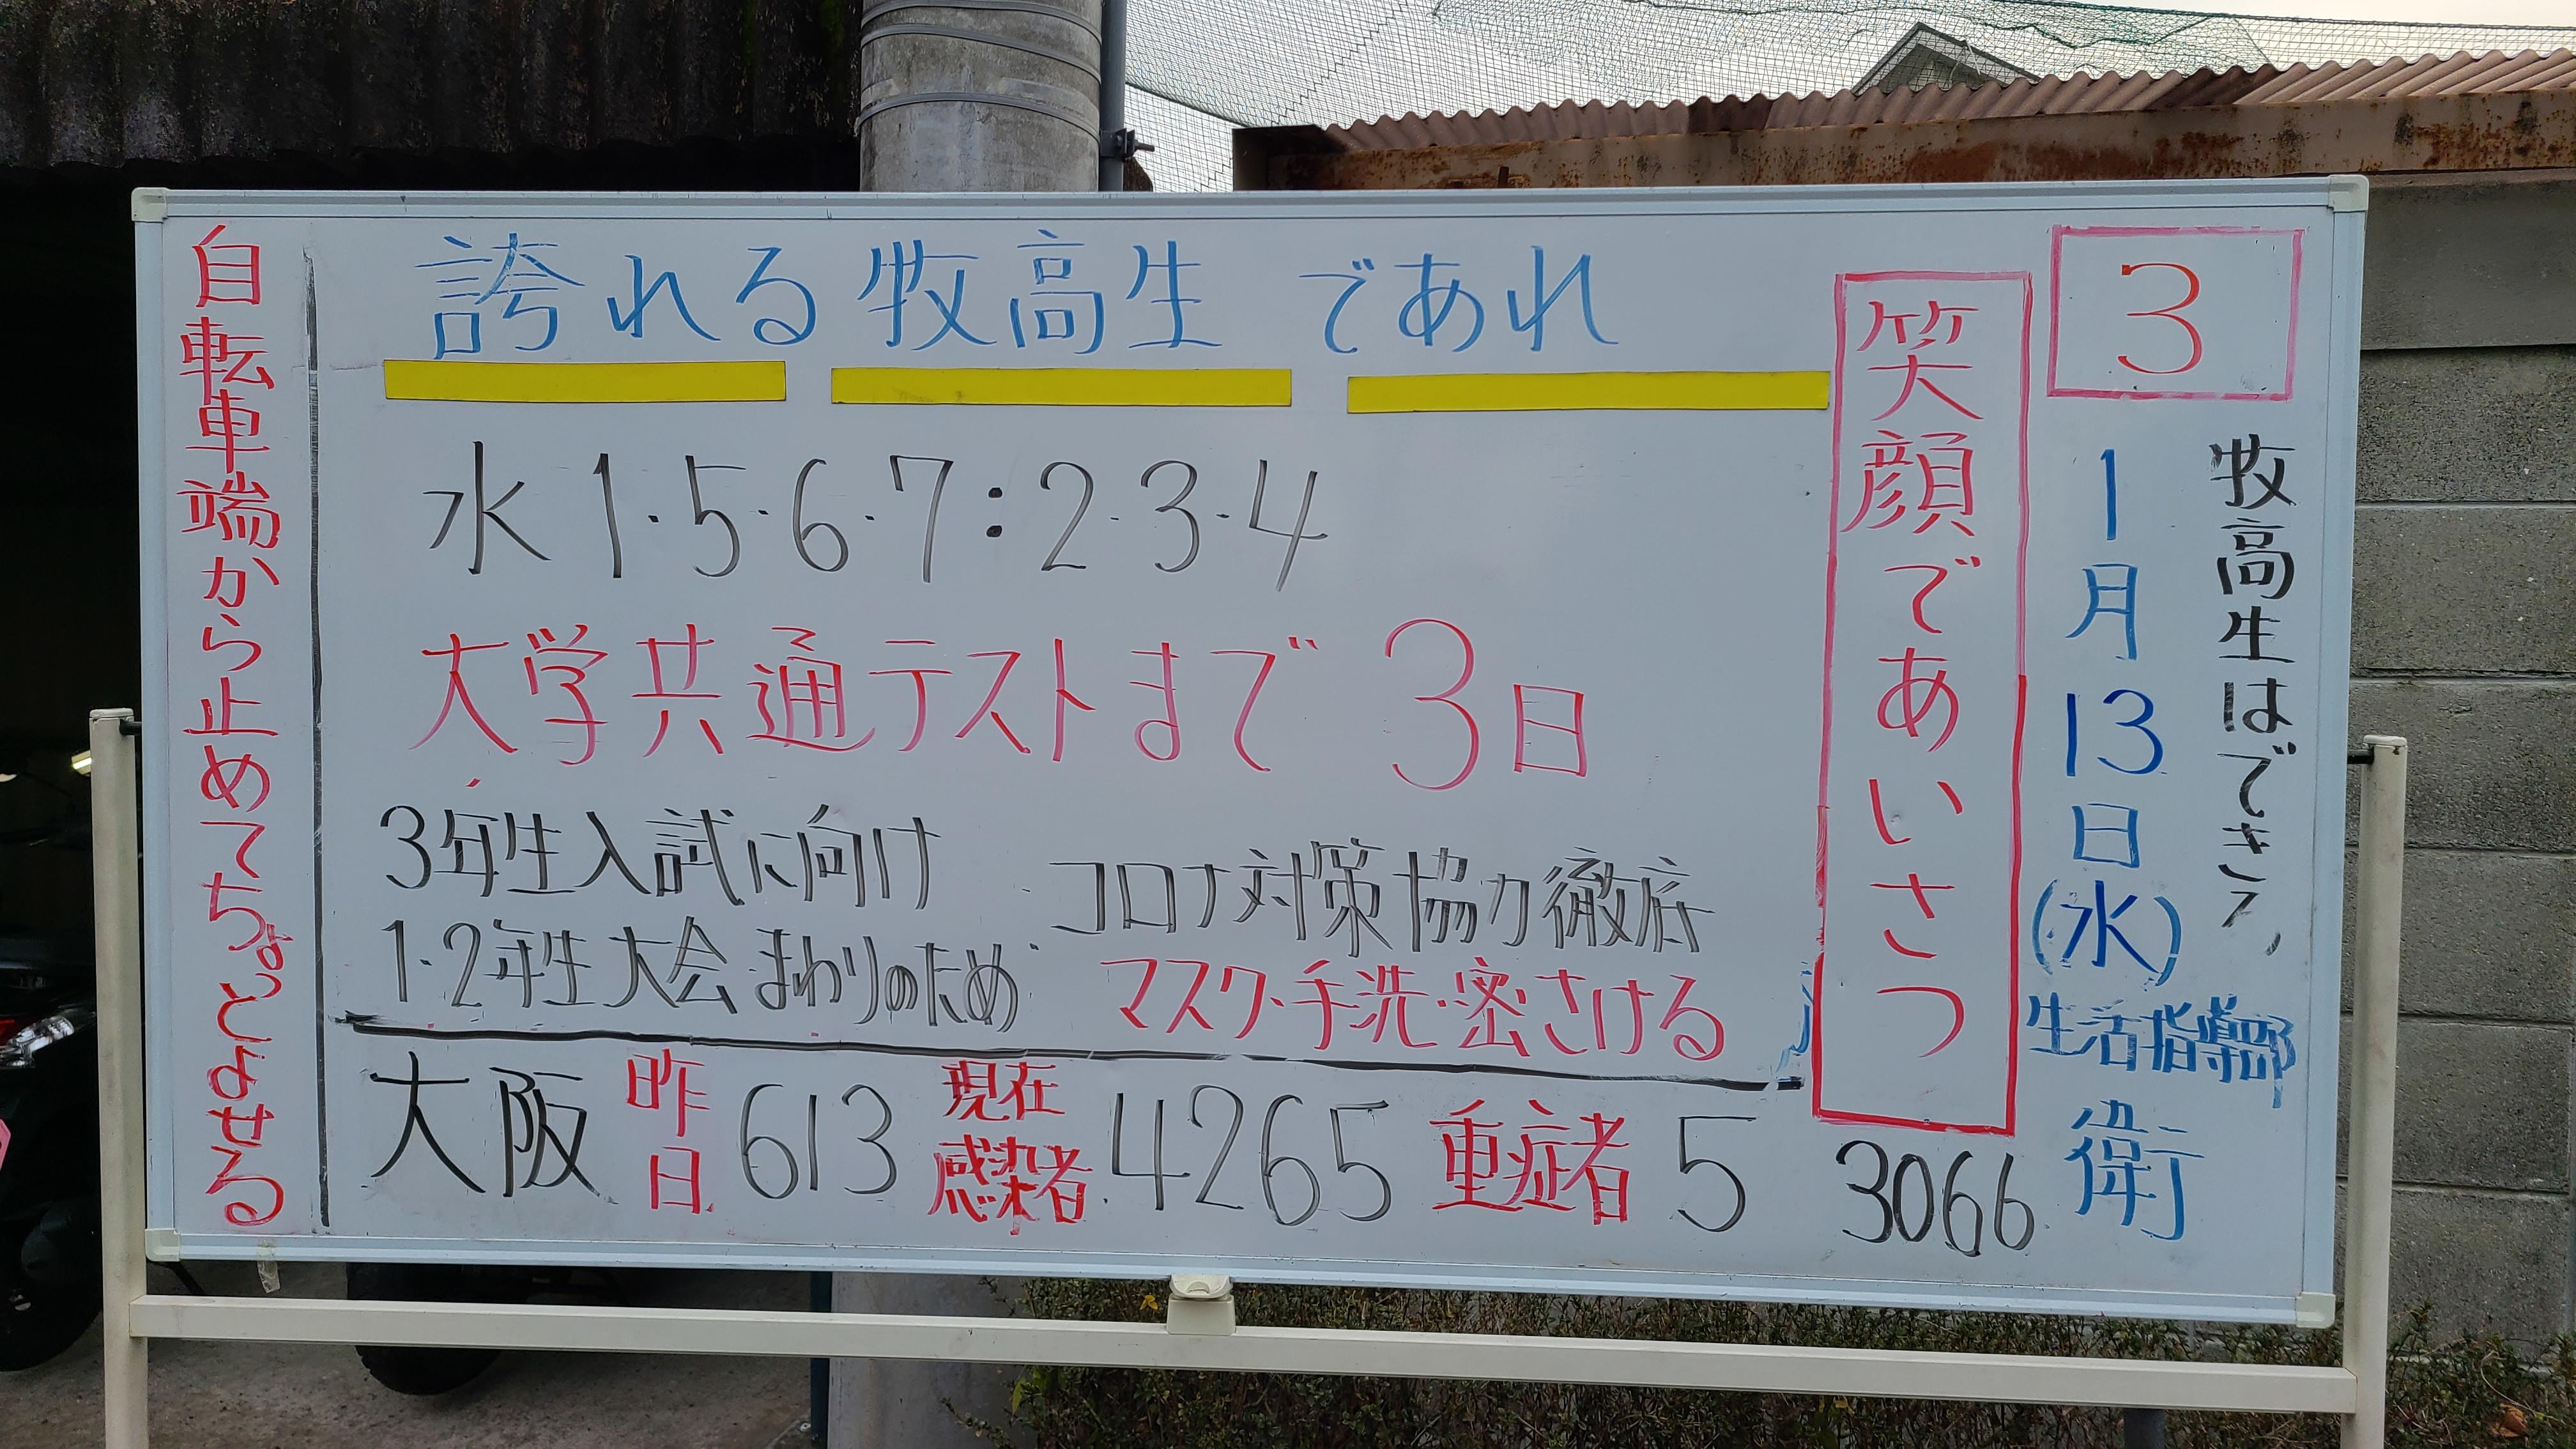 3
牧高生はできる
1月13日(水)
生活指導部
衛
笑顔であいさつ
誇れる牧高生 であれ
水 1・5・6・7:2・3・4
大学共通テストまで 3日
3年生入試に向け
1・2年生大会・まわりのため
コロナ対策協力徹底
マスク・手洗・密さける
大阪 昨日 613 現在感染者 4265 重症者 5
3066
自転車端から止めてちょっとよせる